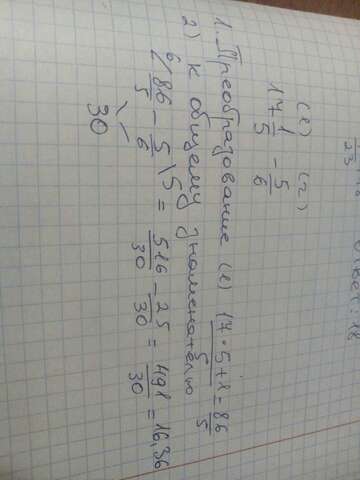 (1) (2)
17 1/5 - 5/6
1. Преобразование (1) (17·5+1)/5 = 86/5
2) к общему знаменателю
6/ 86/5 - 5/6 \5 = 516/30 - 25/30 = 491/30 = 16,36
30
23
Ответ: 18